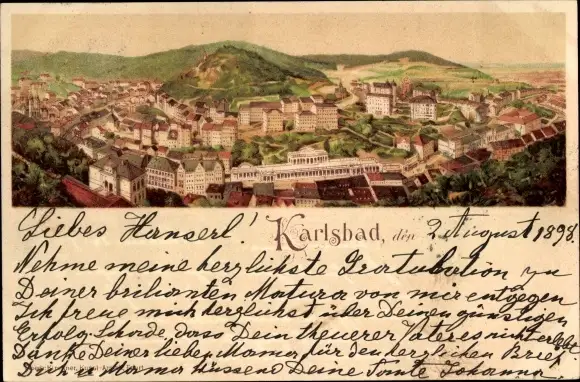 Liebes Hanserl!
Karlsbad, den 2 August 1898.
Nehme meine herzlichste Gratulation zu
Deiner brilianten Matura von mir entgegen
Ich freue mich herzlichst über Deinen günstigen
Erfolg. Schade, dass Dein theuerer Vater es nicht erlebt
Danke Deiner lieben Mama für den herzlichen Brief
Dich u Mama küssend Deine Tante Johanna